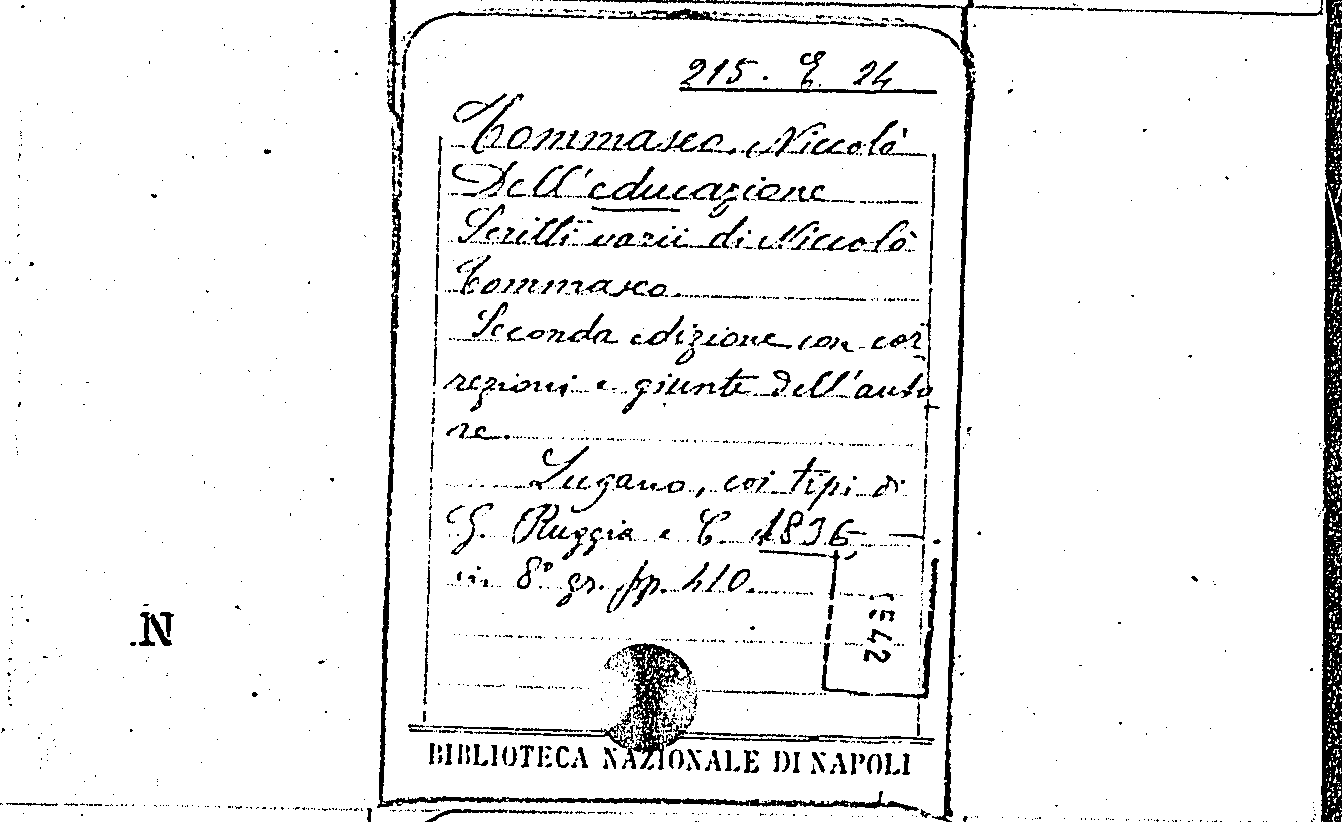 215. E. 24
Tommaseo, Niccolò
Dell'educazione
Scritti varii di Niccolò
Tommaseo.
Seconda edizione con cor-
rezioni e giunte dell'auto-
re.
Lugano, coi tipi di
G. Ruggia e C. 1836, —
in 8° gr. pp. 410.
1542
N.
BIBLIOTECA NAZIONALE DI NAPOLI